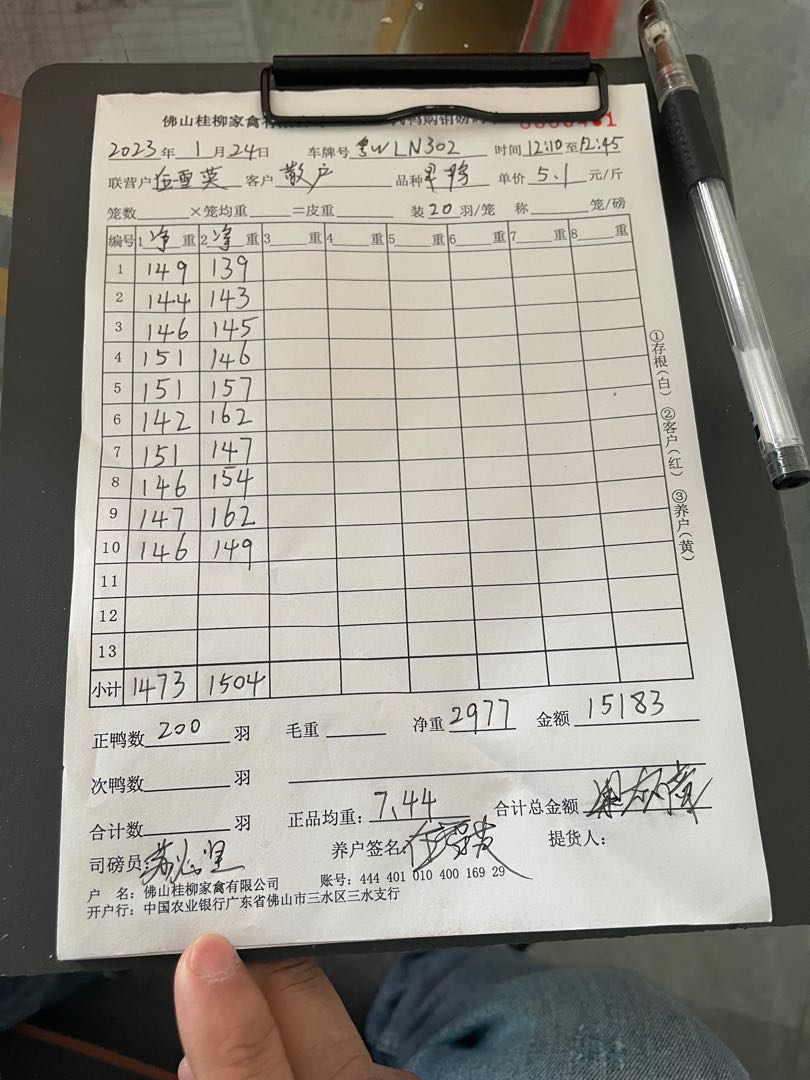 佛山桂柳家禽有
2023年 1月24日 车牌号 粤WLN302 时间 12:10至12:45
联营户 客户 散户 品种 单价 5.1 元/斤
笼数 ×笼均重 =皮重 装 20 羽/笼 称 笼/磅
编号 1 净 重 2 净 重 3 重 4 重 5 重 6 重 7 重 8 重
1 149 139
2 144 143
3 146 145
4 151 146
5 151 157
6 142 162
7 151 147
8 146 154
9 147 162
10 146 149
11
12
13
小计 1473 1504
①存根(白) ②客户(红) ③养户(黄)
正鸭数 200 羽 毛重 净重 2977 金额 15183
次鸭数 羽
合计数 羽 正品均重: 7.44 合计总金额
司磅员: 养户签名: 提货人:
户 名: 佛山桂柳家禽有限公司 账号: 444 401 010 400 169 29
开户行: 中国农业银行广东省佛山市三水区三水支行